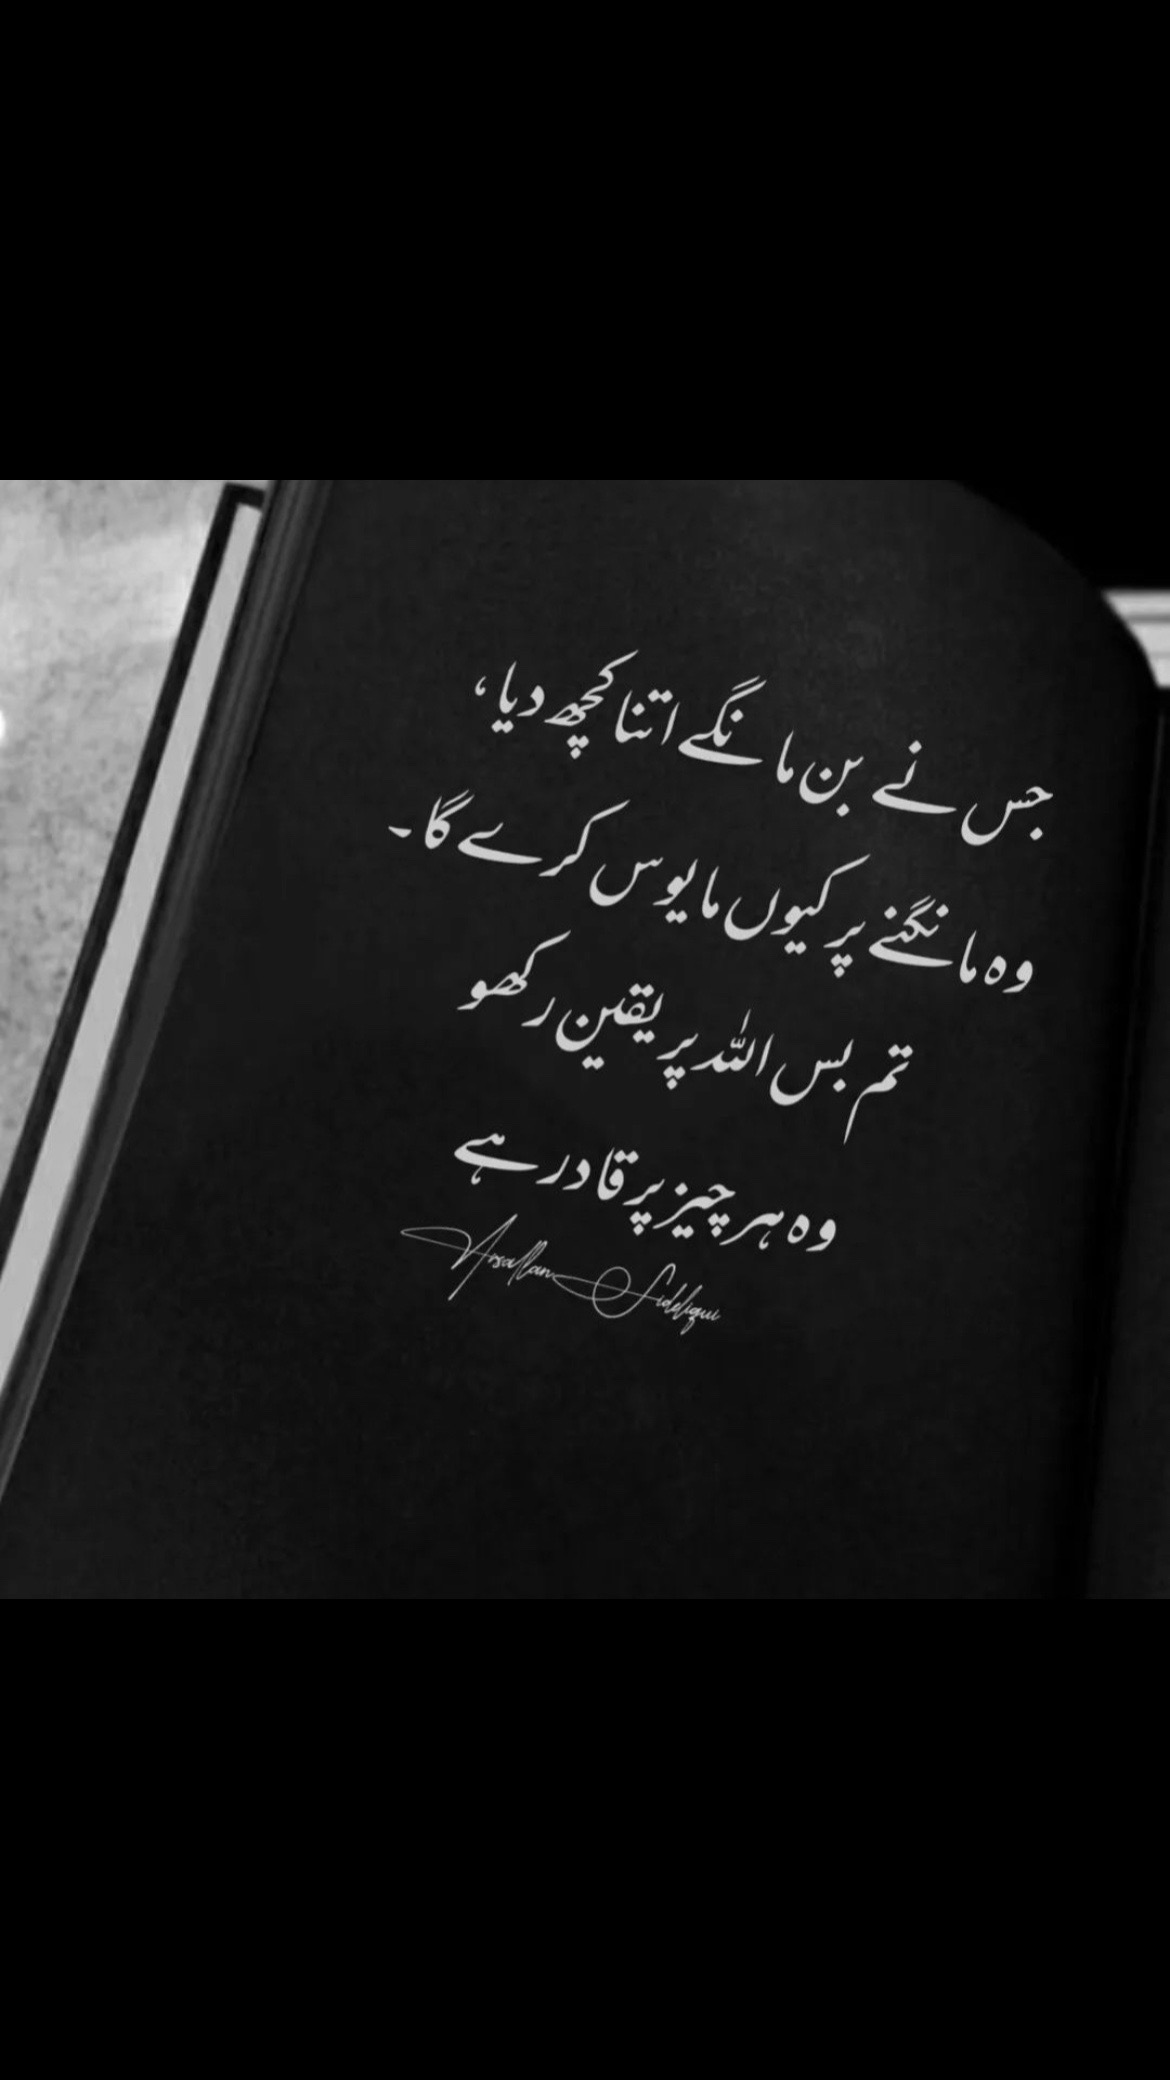 جس نے بن مانگے اتنا کچھ دیا،
وہ مانگنے پر کیوں مایوس کرے گا۔
تم بس اللہ پر یقین رکھو
وہ ہر چیز پر قادر ہے
Arsallan Siddiqui